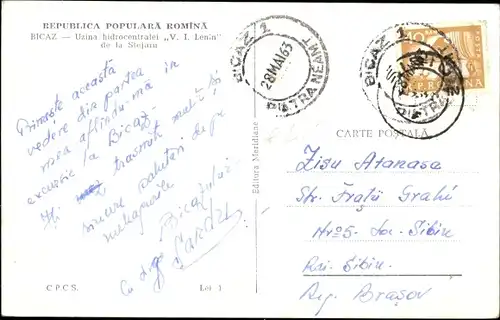 REPUBLICA POPULARĂ ROMÎNĂ
BICAZ — Uzina hidrocentralei „V. I. Lenin”
de la Stejaru
Primește această
vedere din partea
mea aflîndu-mă în
excursie la Bicaz.
Îți transmit
sincere salutări de pe
meleagurile Bicazului
Cu drag
BICAZ 1
28 MAI 63
PIATRA NEAMT
BICAZ 1
PIATRA
C.P.R.
CARTE POȘTALĂ
Editura Meridiane
Zisu Atanasa
Str. Frații Grahi
Nr 5. Loc. Sibiu
Rai. Sibiu.
Reg. Brașov
C P C S.
Lot 1